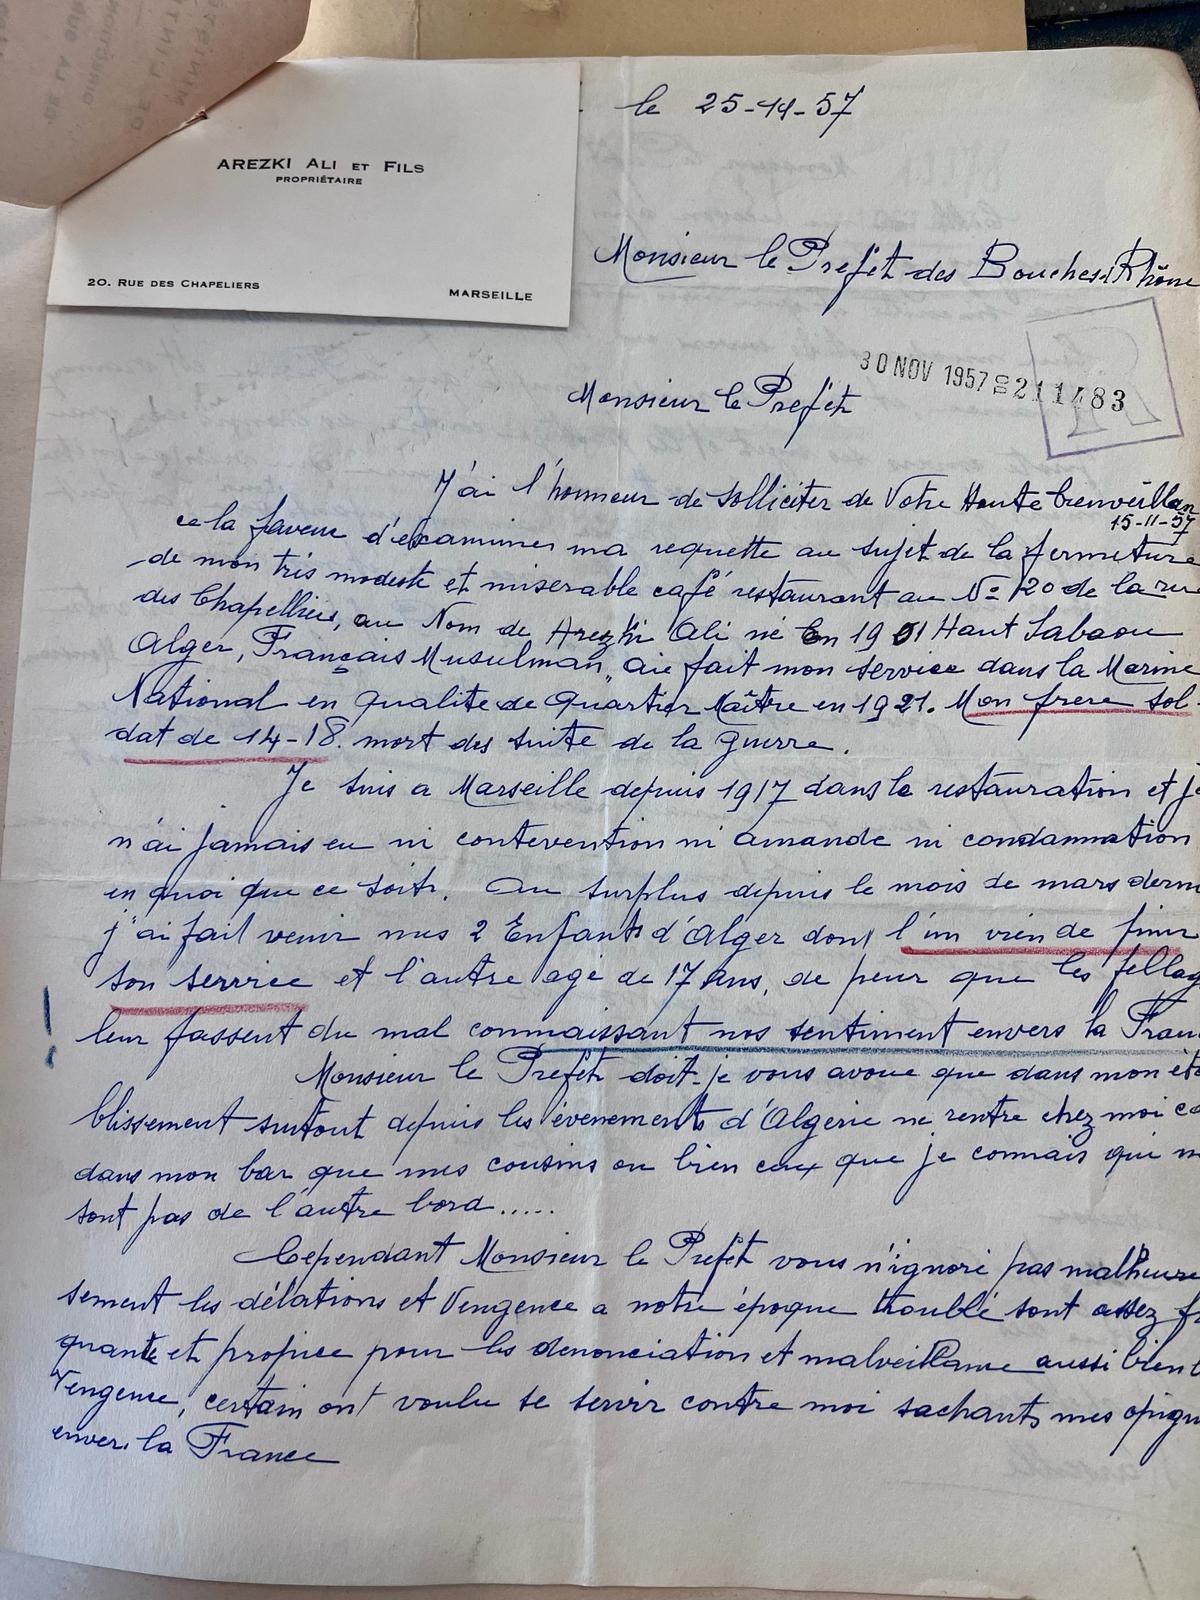 le 25-11-57
AREZKI ALI ET FILS
PROPRIÉTAIRE
20. RUE DES CHAPELIERS
MARSEILLE
Monsieur le Prefèt des Bouches d Rhône
30 NOV 1957 211483
Monsieur le Prefèt
J'ai l'honneur de solliciter de Votre Haute bienveillan
15-11-57
ce la faveur d'éxaminer ma requette au sujet de la fermeture
de mon très modeste et miserable café restaurant au No 20 de la rue
des Chapelliers, au Nom de Arezki Ali né En 1901 Haut Sabaou
Alger, Français Musulman, aie fait mon service dans la Marine
National en qualité de Quartier Maître en 1921. Mon frere sol-
dat de 14-18. mort des suite de la guerre.
Je suis a Marseille depuis 1917 dans la restauration et je
n'ai jamais eu ni contevention ni amande ni condamnation
en quoi que ce soit. Au surplus depuis le mois de mars dern
j'ai fait venir mes 2 Enfants d'Alger dont l'un vien de finir
son service et l'autre agé de 17 ans, de peur que les fellag
leur fassent du mal connaissant nos sentiment envers la Fran
Monsieur le Prefèt doit-je vous avoue que dans mon éta
blissement surtout depuis les évenements d'Algerie ne rentre chez moi co
dans mon bar que mes cousins ou bien ceux que je connais qui n
sont pas de l'autre bord.....
Cependant Monsieur le Prefèt vous n'ignoré pas malheure
sement les délations et Vengence a notre époque troublé sont assez fr
quante et propice pour les denonciation et malveillance aussi bien
Vengence, certain ont voulu se servir contre moi sachants mes opign
enver. la France